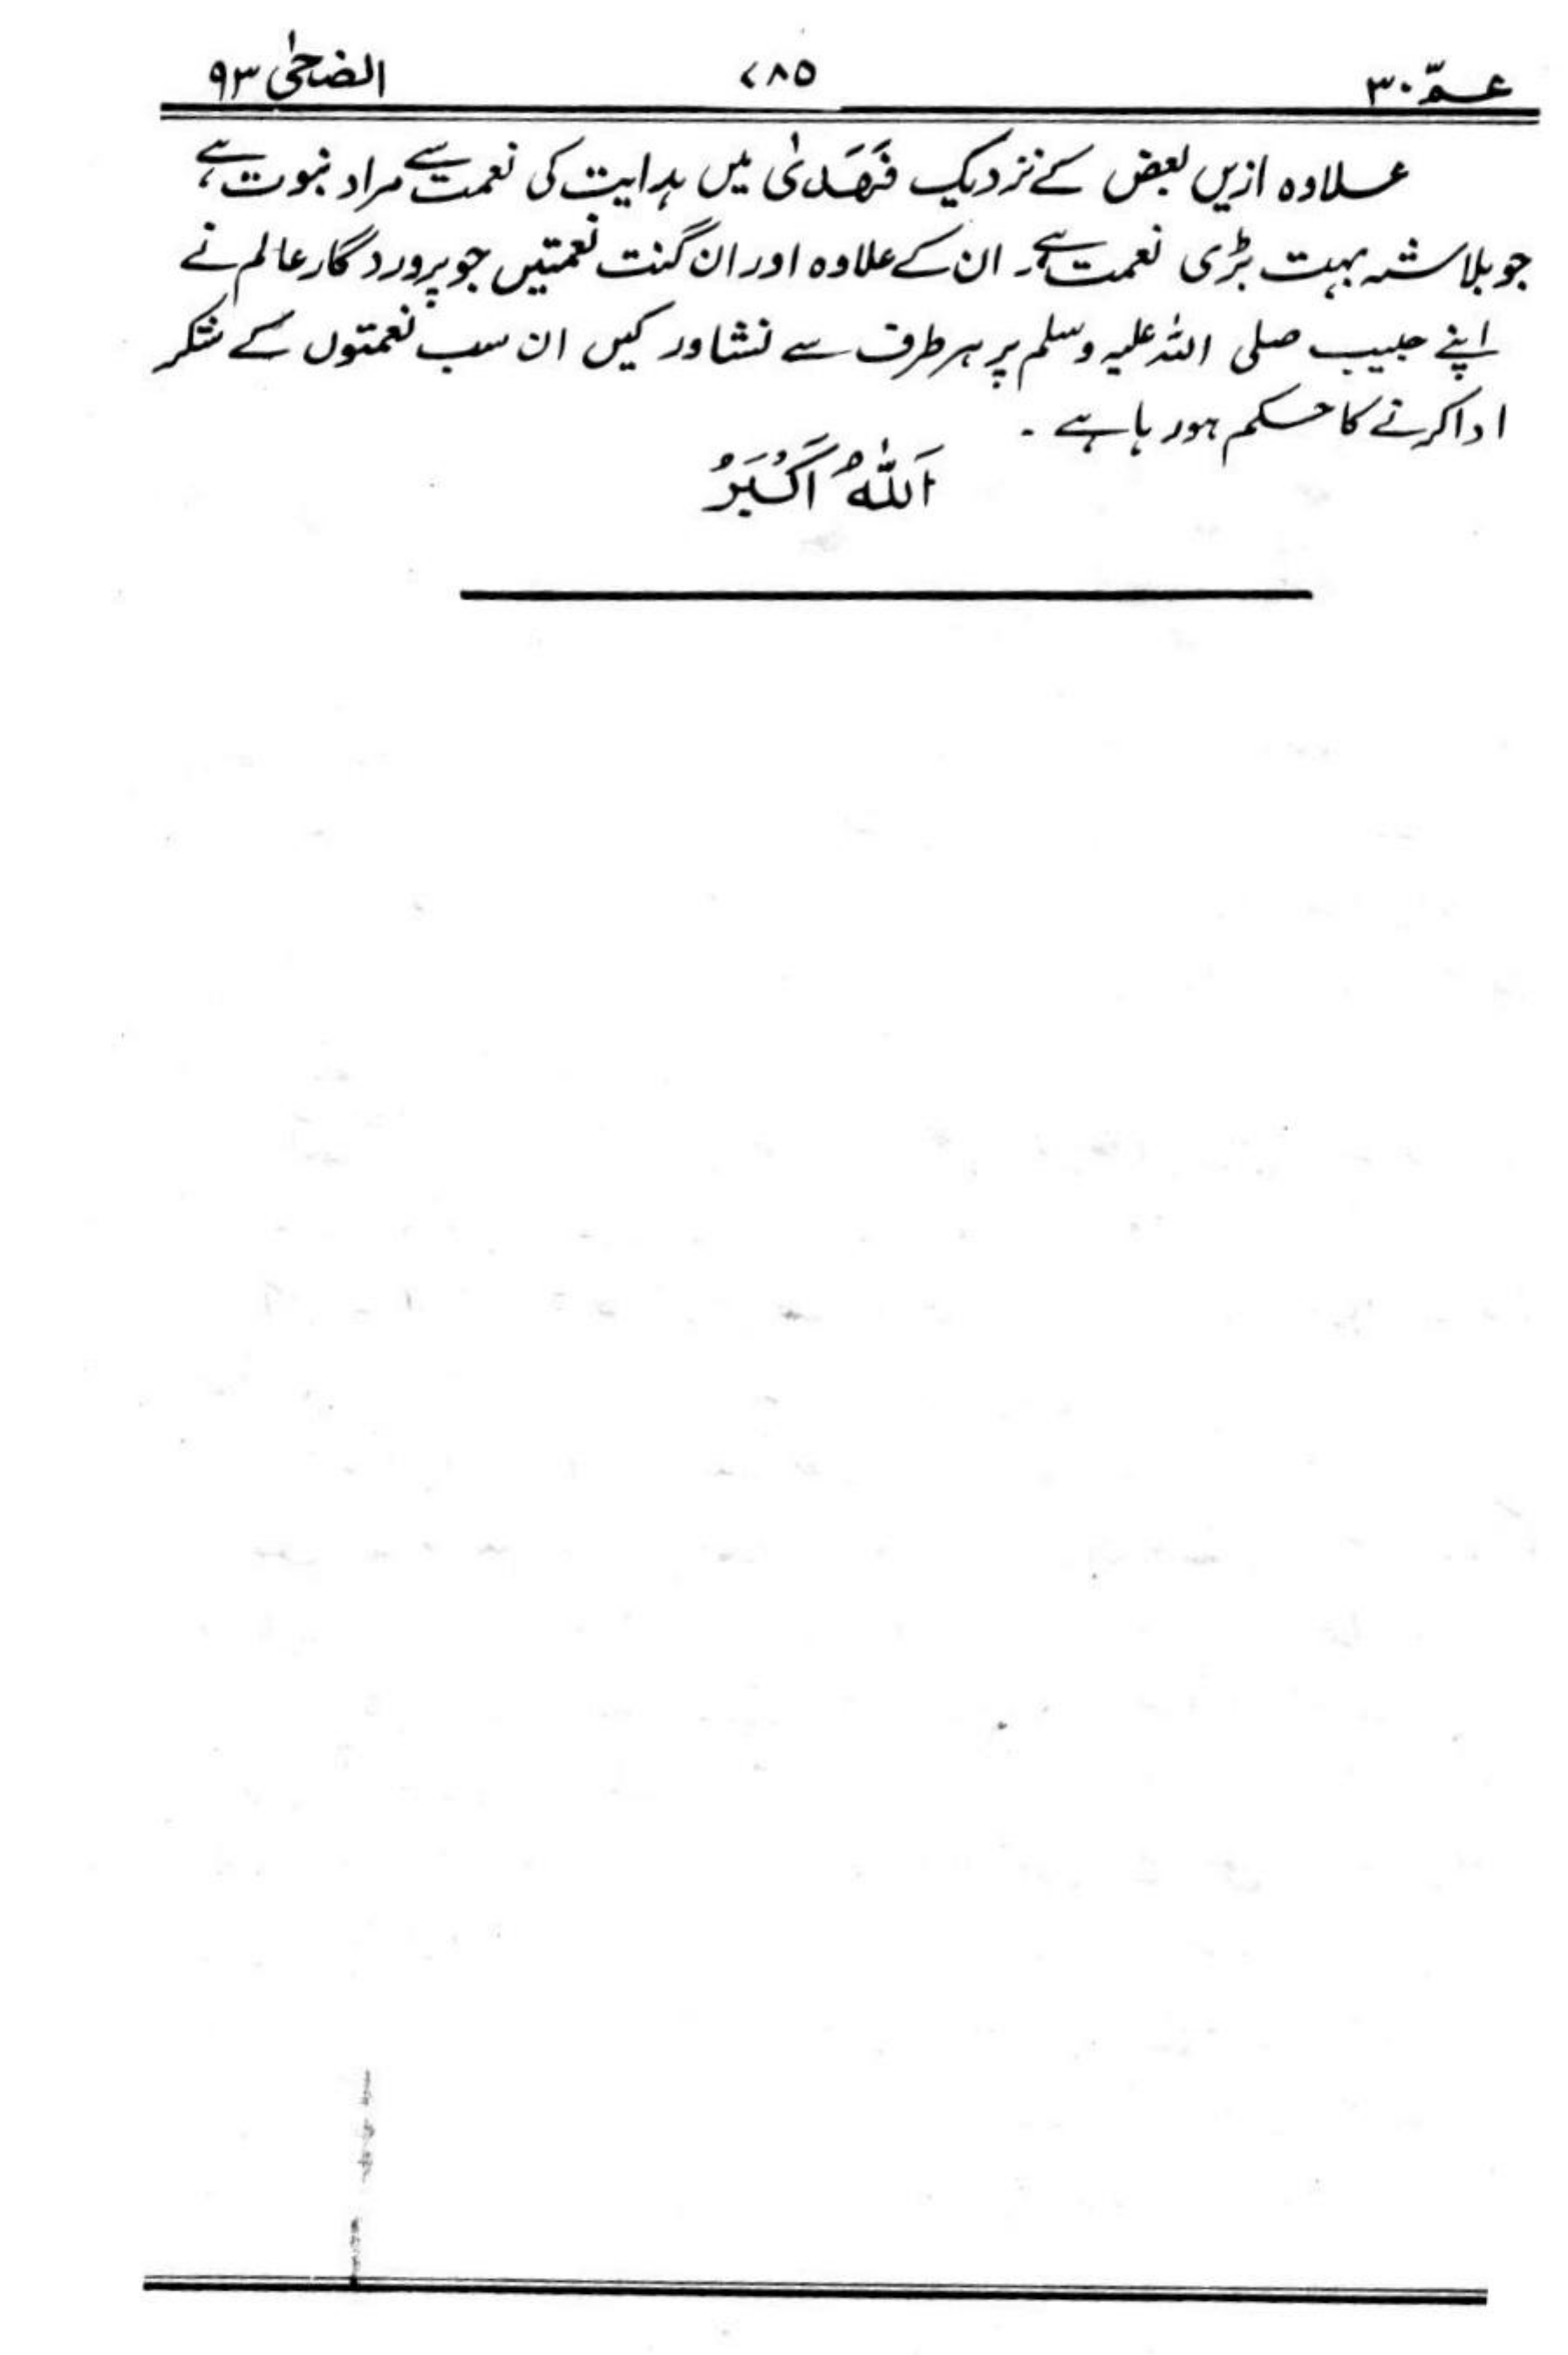 عمّ ۳۰ ۷۸۵ الضحٰی ۹۳
علاوہ ازیں بعض کے نزدیک فَهَدٰی میں ہدایت کی نعمت سے مراد نبوت ہے،
جو بلاشبہ بہت بڑی نعمت ہے۔ ان کے علاوہ اور ان گنت نعمتیں جو پروردگار عالم نے
اپنے حبیب صلی اللہ علیہ وسلم پر ہر طرف سے نشاور کیں ان سب نعمتوں کے شکر
ادا کرنے کا حکم ہو رہا ہے ۔
اَللّٰهُ اَکْبَرُ